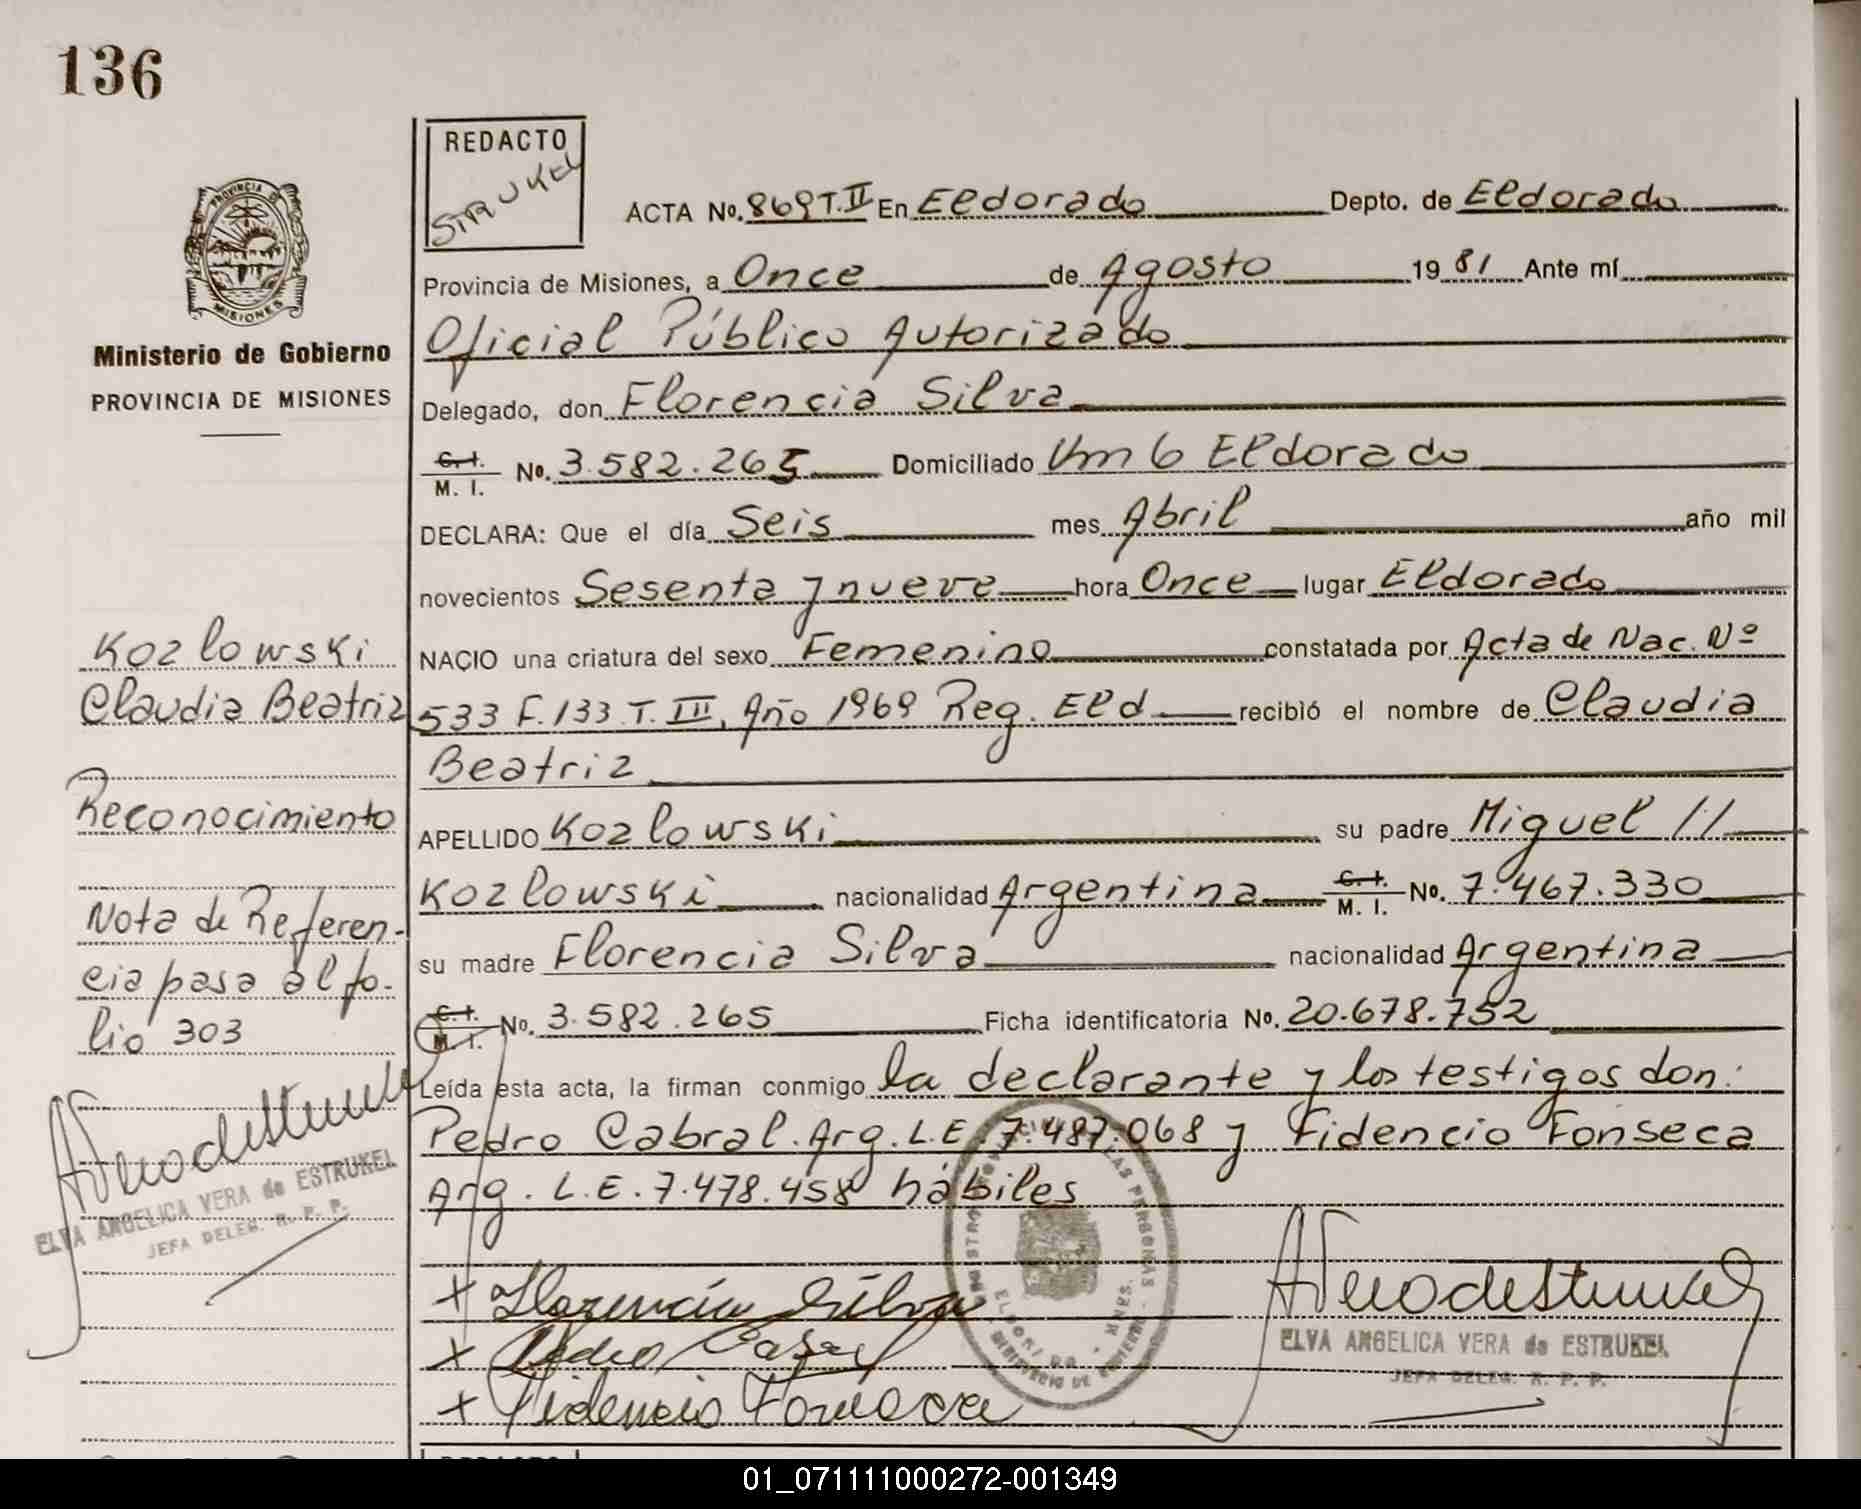 136
REDACTO
STRUKEL
ACTA No. 869 T. II En Eldorado Depto. de Eldorado
Provincia de Misiones, a Once de Agosto 19 81 Ante mí
Oficial Público Autorizado
Delegado, don Florencia Silva
C. I. / M. I. No. 3.582.265 Domiciliado Km 6 Eldorado
DECLARA: Que el día Seis mes Abril año mil
novecientos Sesenta y nueve hora Once lugar Eldorado
NACIO una criatura del sexo Femenino constatada por Acta de Nac. Nº
533 F. 133 T. III, Año 1969 Reg. Eld recibió el nombre de Claudia
Beatriz
APELLIDO Kozlowski su padre Miguel //
Kozlowski nacionalidad Argentina C. I. / M. I. No. 7.467.330
su madre Florencia Silva nacionalidad Argentina
C. I. / M. I. No. 3.582.265 Ficha identificatoria No. 20.678.752
Leída esta acta, la firman conmigo la declarante y los testigos don:
Pedro Cabral. Arg. L.E. 7.487.068 y Fidencio Fonseca
Arg. L.E. 7.478.458 hábiles
x Florencia Silva
x Pedro Cabral
x Fidencio Fonseca
ELVA ANGELICA VERA de ESTRUKEL
JEFA DELEG. R. P. P.
PROVINCIA DE
MISIONES
Ministerio de Gobierno
PROVINCIA DE MISIONES
Kozlowski
Claudia Beatriz
Reconocimiento
Nota de Referen-
cia pasa al fo-
lio 303
ELVA ANGELICA VERA de ESTRUKEL
JEFA DELEG. R. P. P.
REDACTO
01_071111000272-001349